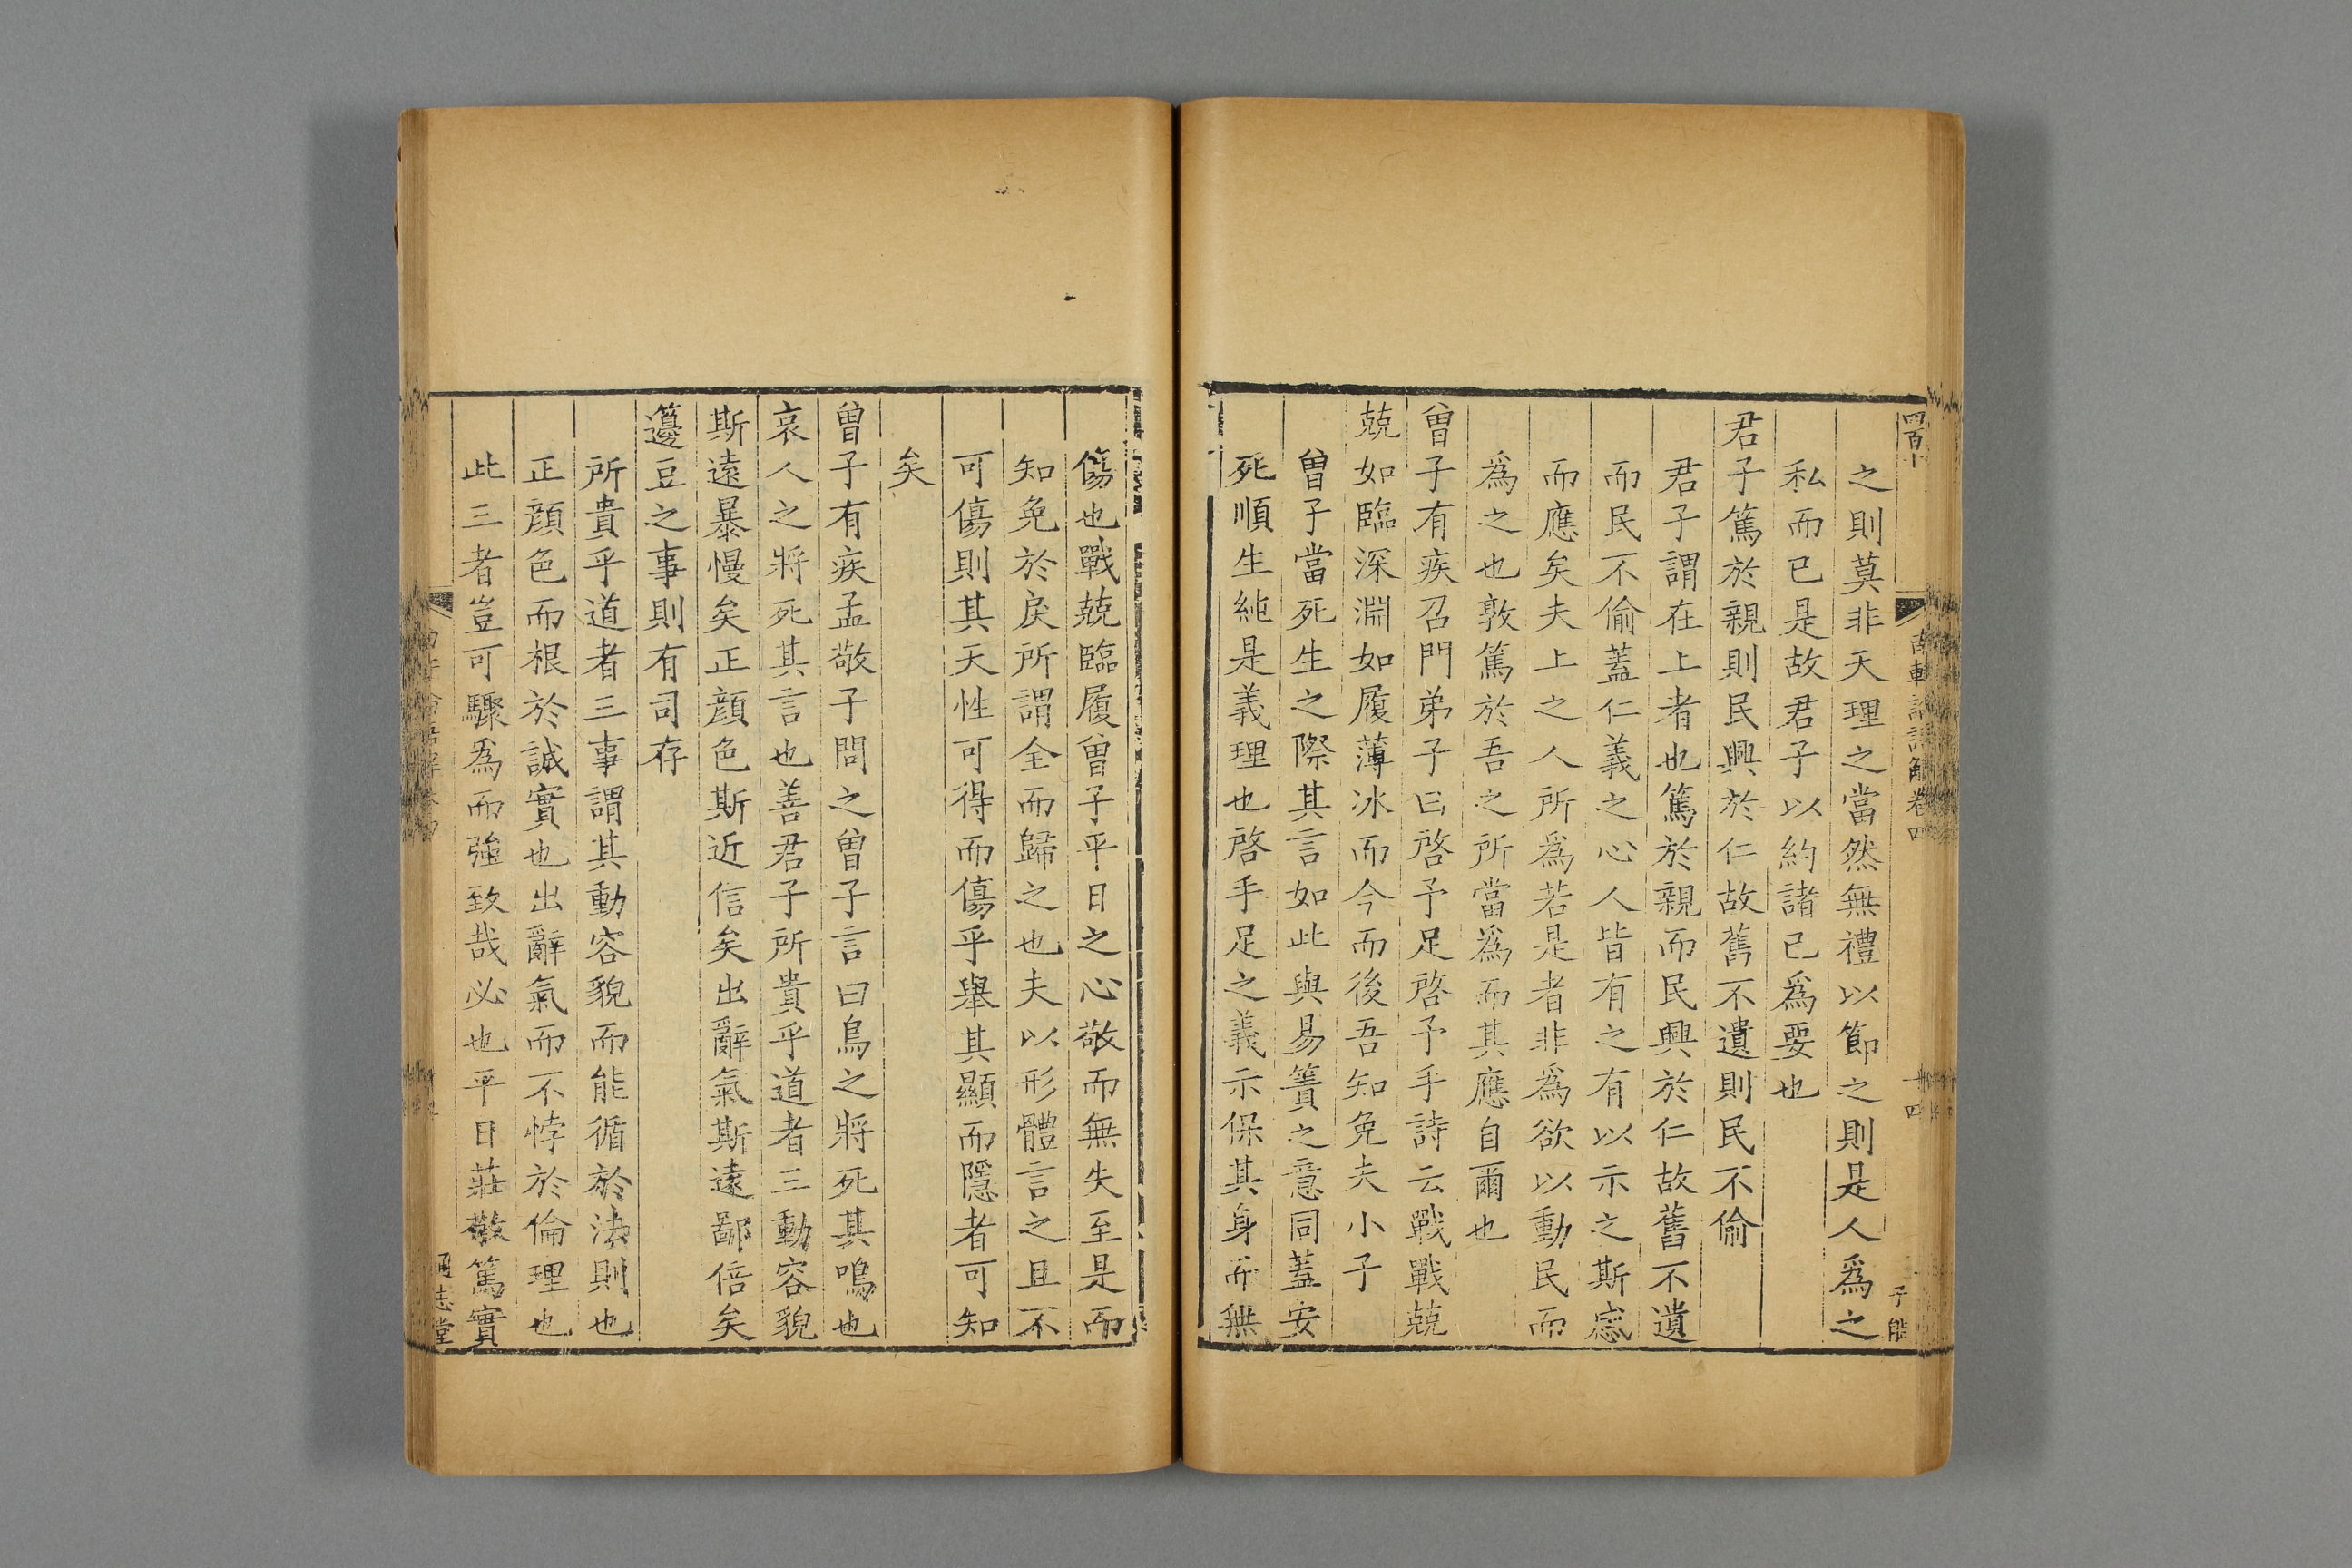 之則莫非天理之當然無禮以節之則是人爲之
私而已是故君子以約諸己爲要也
君子篤於親則民興於仁故舊不遺則民不偷
君子謂在上者也篤於親而民興於仁故舊不遺
而民不偷蓋仁義之心人皆有之有以示之斯感
而應矣夫上之人所爲若是者非爲欲以動民而
爲之也敦篤於吾之所當爲而其應自爾也
曾子有疾召門弟子曰啓予足啓予手詩云戰戰兢
兢如臨深淵如履薄冰而今而後吾知免夫小子
曾子當死生之際其言如此與易簀之意同蓋安
死順生純是義理也啓手足之義示保其身而無
傷也戰兢臨履曾子平日之心敬而無失至是而
知免於戾所謂全而歸之也夫以形體言之且不
可傷則其天性可得而傷乎舉其顯而隱者可知
矣
曾子有疾孟敬子問之曾子言曰鳥之將死其鳴也
哀人之將死其言也善君子所貴乎道者三動容貌
斯遠暴慢矣正顏色斯近信矣出辭氣斯遠鄙倍矣
籩豆之事則有司存
所貴乎道者三事謂其動容貌而能循於法則也
正顏色而根於誠實也出辭氣而不悖於倫理也
此三者豈可驟爲而強致哉必也平日莊敬篤實
南軒論語解卷四
十四
通志堂